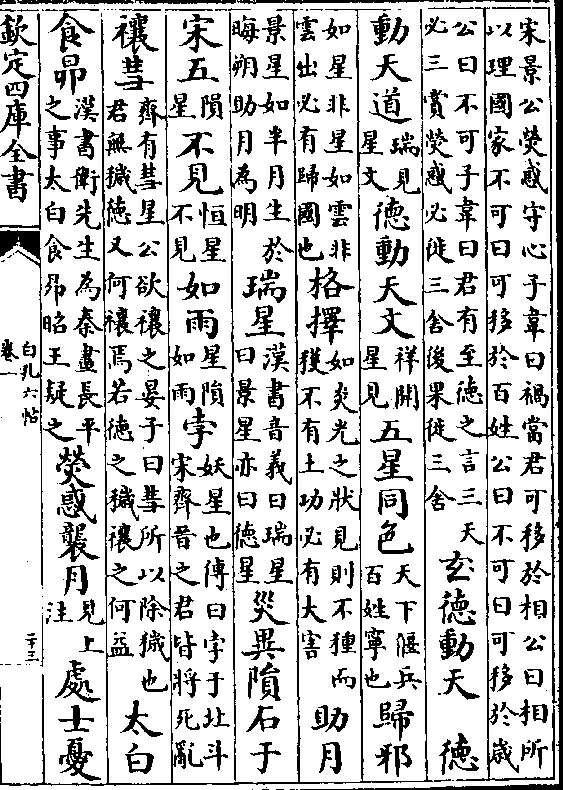 宋景公熒惑守心子韋曰禍當君可移於相公曰相所以理國家不可曰可移於百姓公曰不可曰可移於歲
公曰不可子韋曰君有至德之言三天必三賞熒惑必徙三舍後果徙三舍玄德動天德
動天道瑞見星文德動天文祥開星見五星同色天下偃兵百姓寧也歸邪
如星非星如雲非雲出必有歸國也格擇如炎光之狀見則不種而獲不有土功必有大害助月
景星如半月生於晦朔助月為明瑞星漢書音義曰瑞星曰景星亦曰德星災異隕石于
宋五隕星不見恒星不見如雨星隕如雨孛妖星也傳曰孛于北斗宋齊晉之君皆將死亂
禳彗齊有彗星公欲禳之晏子曰彗所以除穢也君無穢德又何禳焉若德之穢禳之何益太白
食昴漢書衛先生為秦畫長平之事太白食昴昭王疑之熒惑襲月見上注處士憂
欽定四庫全書
白孔六帖
卷一
二十三